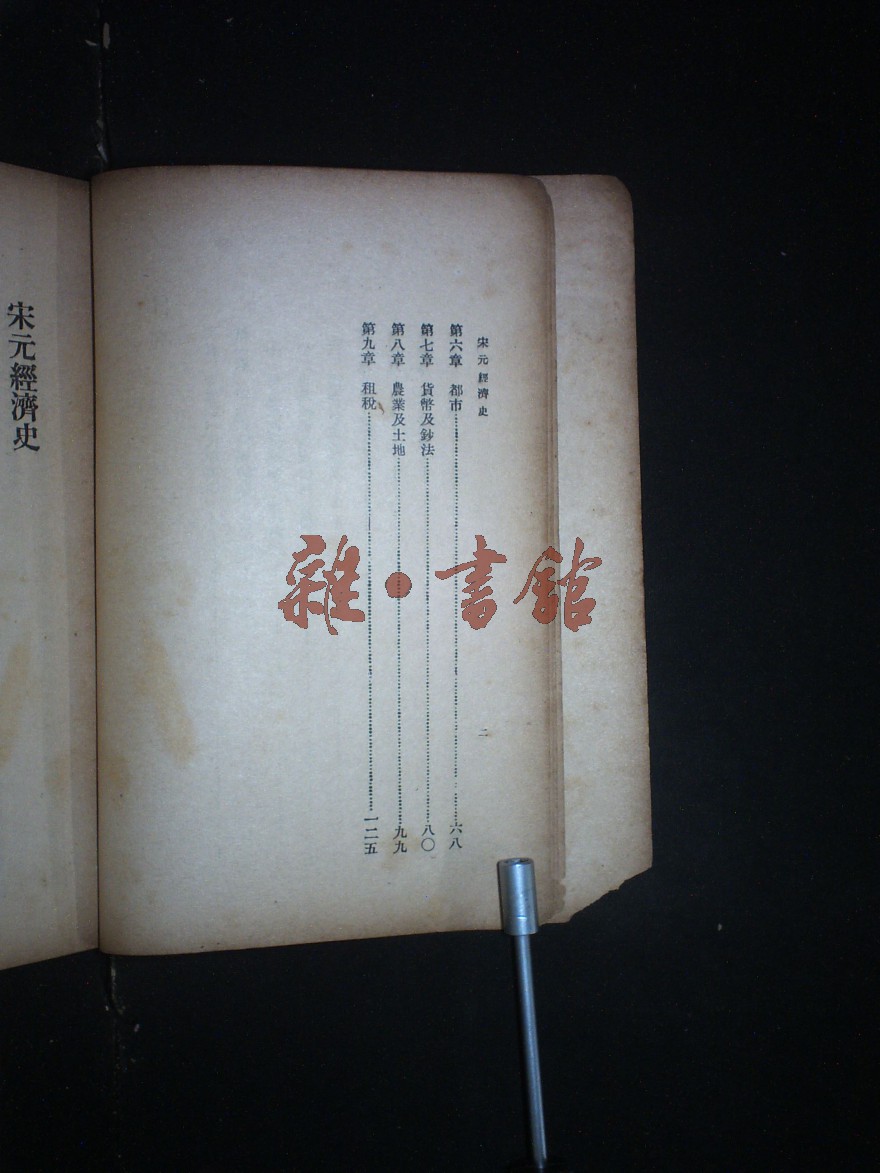 宋元經濟史
二
第六章　都市 六八
第七章　貨幣及鈔法 八〇
第八章　農業及土地 九九
第九章　租稅 一二五
宋元經濟史
雜·書館